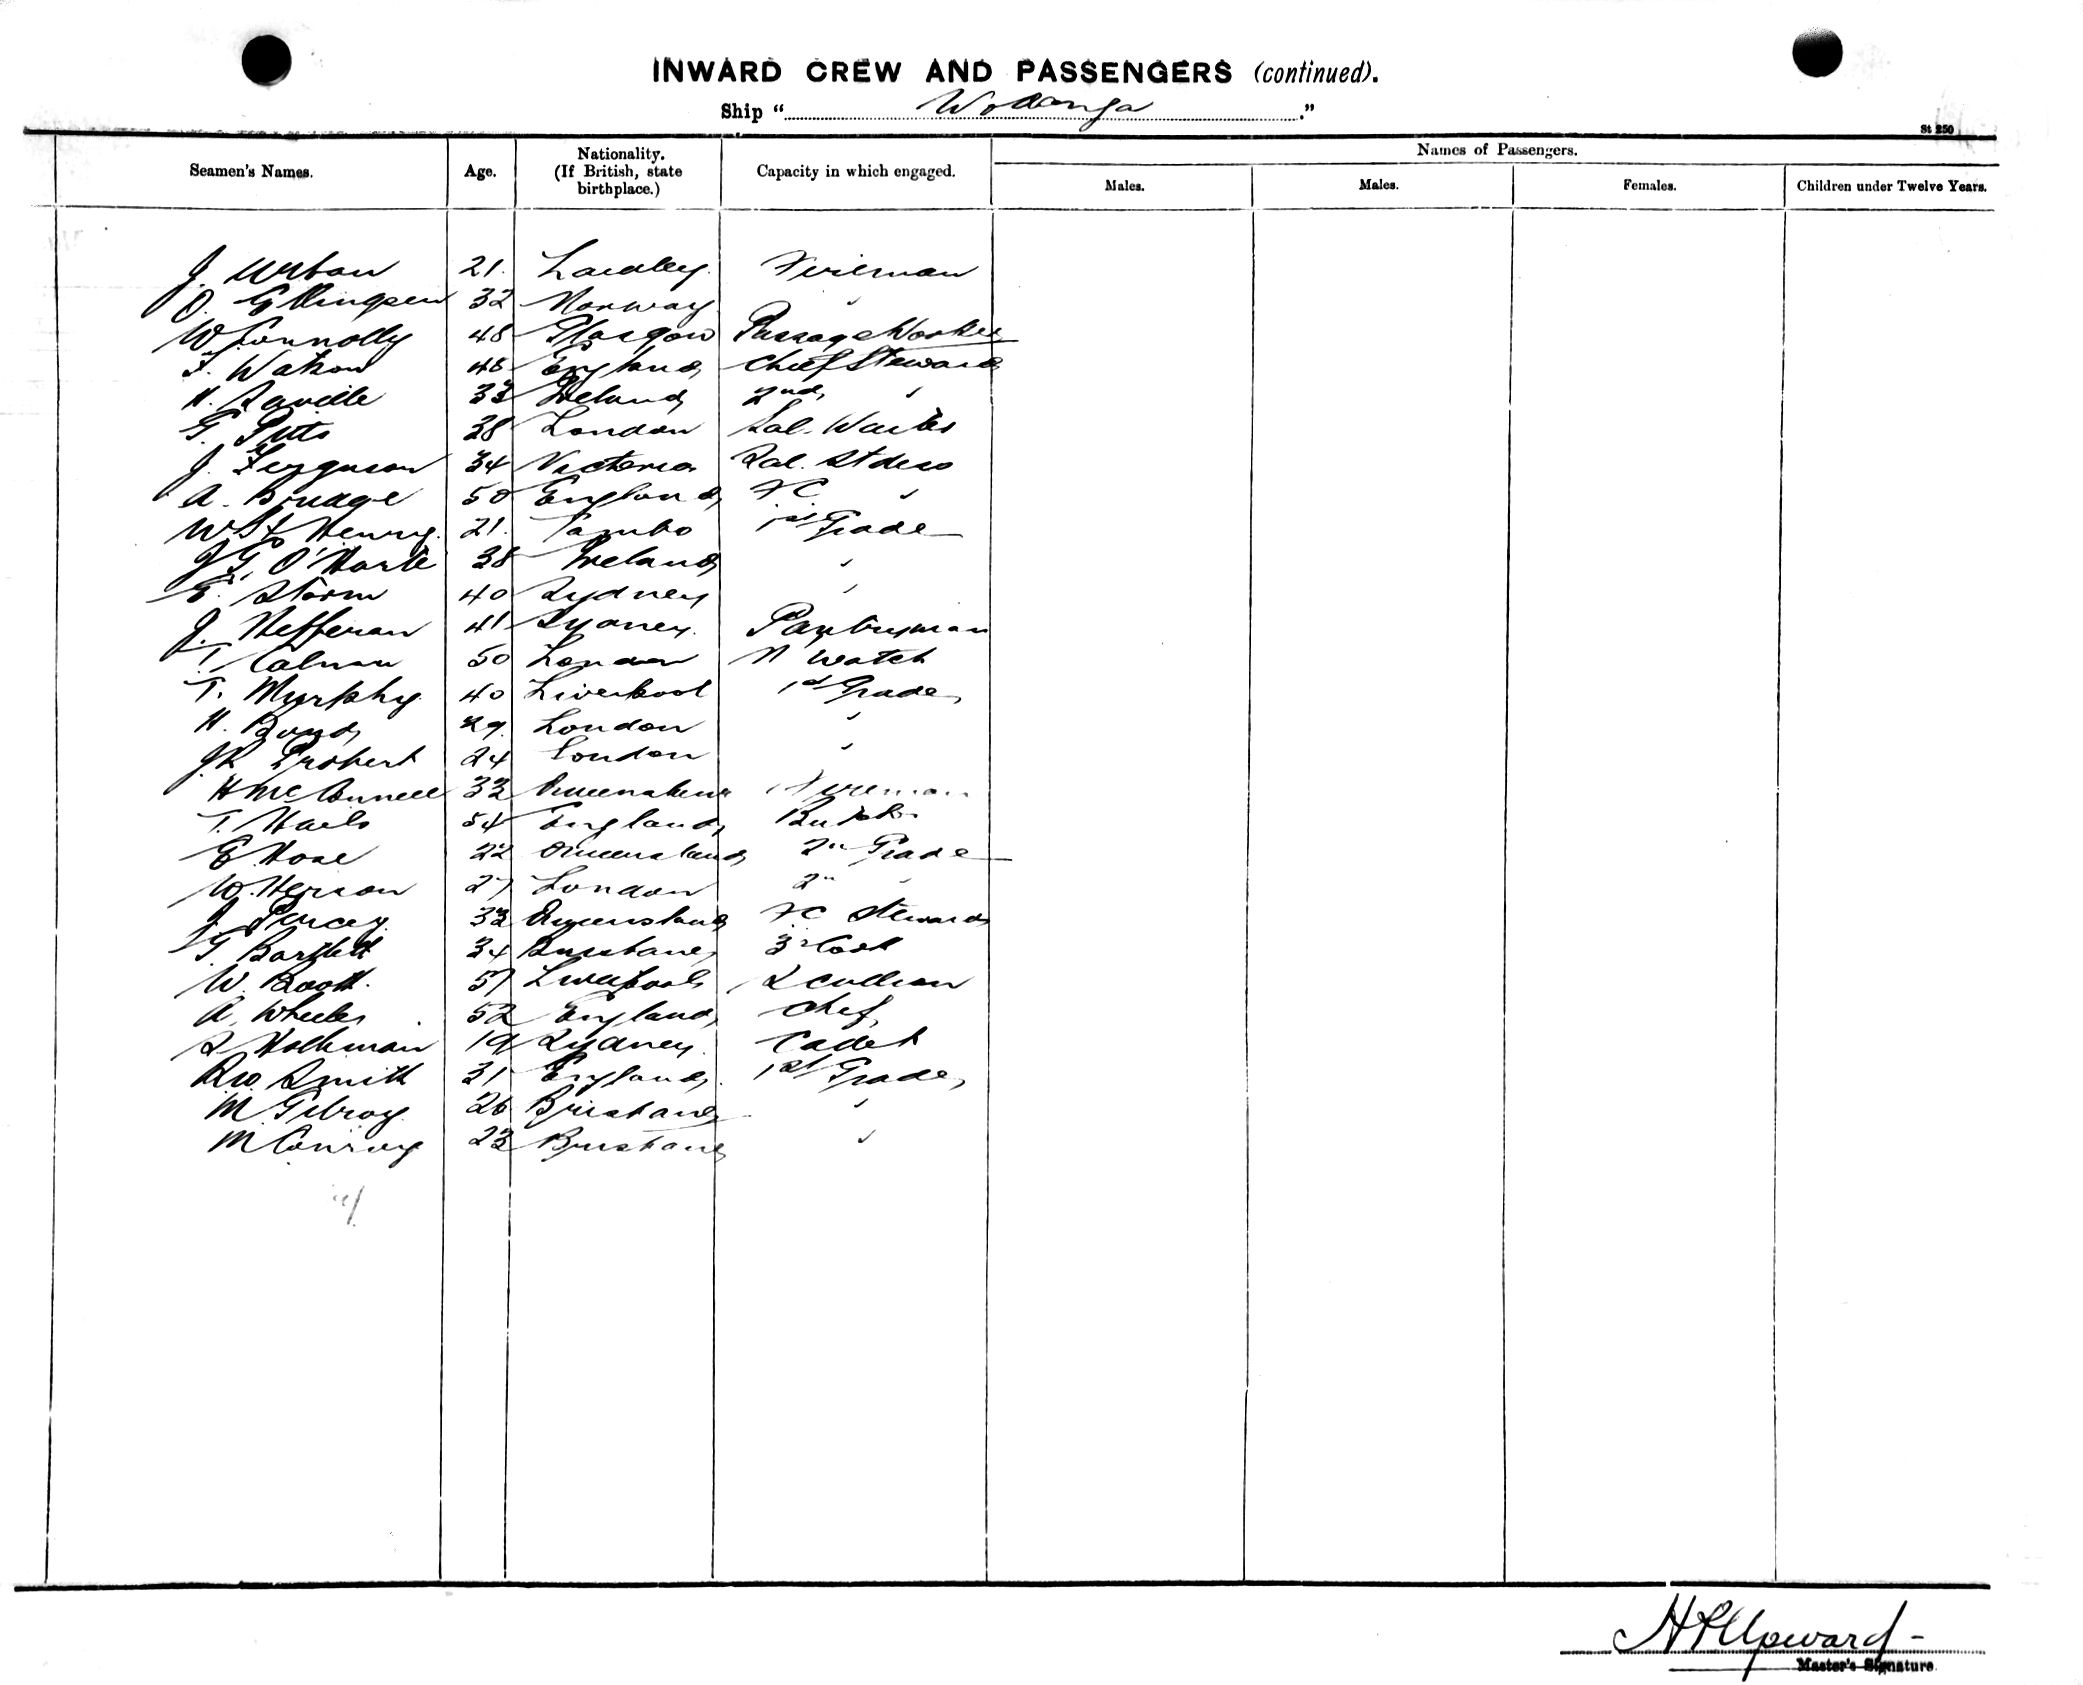 INWARD CREW AND PASSENGERS (continued).
Ship "Wodonga."
St 250
Seamen's Names. Age. Nationality. (If British, state birthplace.) Capacity in which engaged. Names of Passengers.
Males. Males. Females. Children under Twelve Years.
J. Urban 21. Laidley. Fireman
O. Ellingsen 32 Norway "
W Connolly 48 Glasgow Passage Worker
F. Watson 48 England Chief Steward
H. Saville 33 Ireland 2nd "
G. Pitts 38 London Sal. Waiter
J. Ferguson 34 Victoria Sal. Stdess
A. Brudge 50 England FC "
W St Henry. 21. Tambo 1st Grade
J G. O'Harte 38 Ireland "
E. Storm 40 Sydney "
J. Hefferan 41 Sydney. Pantryman
T. Calnan 50 London N Watch
T. Murphy 40 Liverpool 1st Grade
H. Bond 29. London "
J R Probert 24 London "
H McConnell 33 Queensland Fireman
T. Hails 54 England Butcher
E Hose 22 Queensland 2nd Grade
W. Herson 27 London 2nd "
J. Percy 33 Queensland FC Steward
G. Bartlett 34 Brisbane 3rd Cook
W. Booth. 57 Liverpool Scullion
A. Wheeler 52 England Chef
S Holkman 19 Sydney. Cadet
R W. Smith 31 England. 1st Grade
M Gilroy. 26 Brisbane "
M Conroy 23 Brisbane "
Upward
Master's Signature